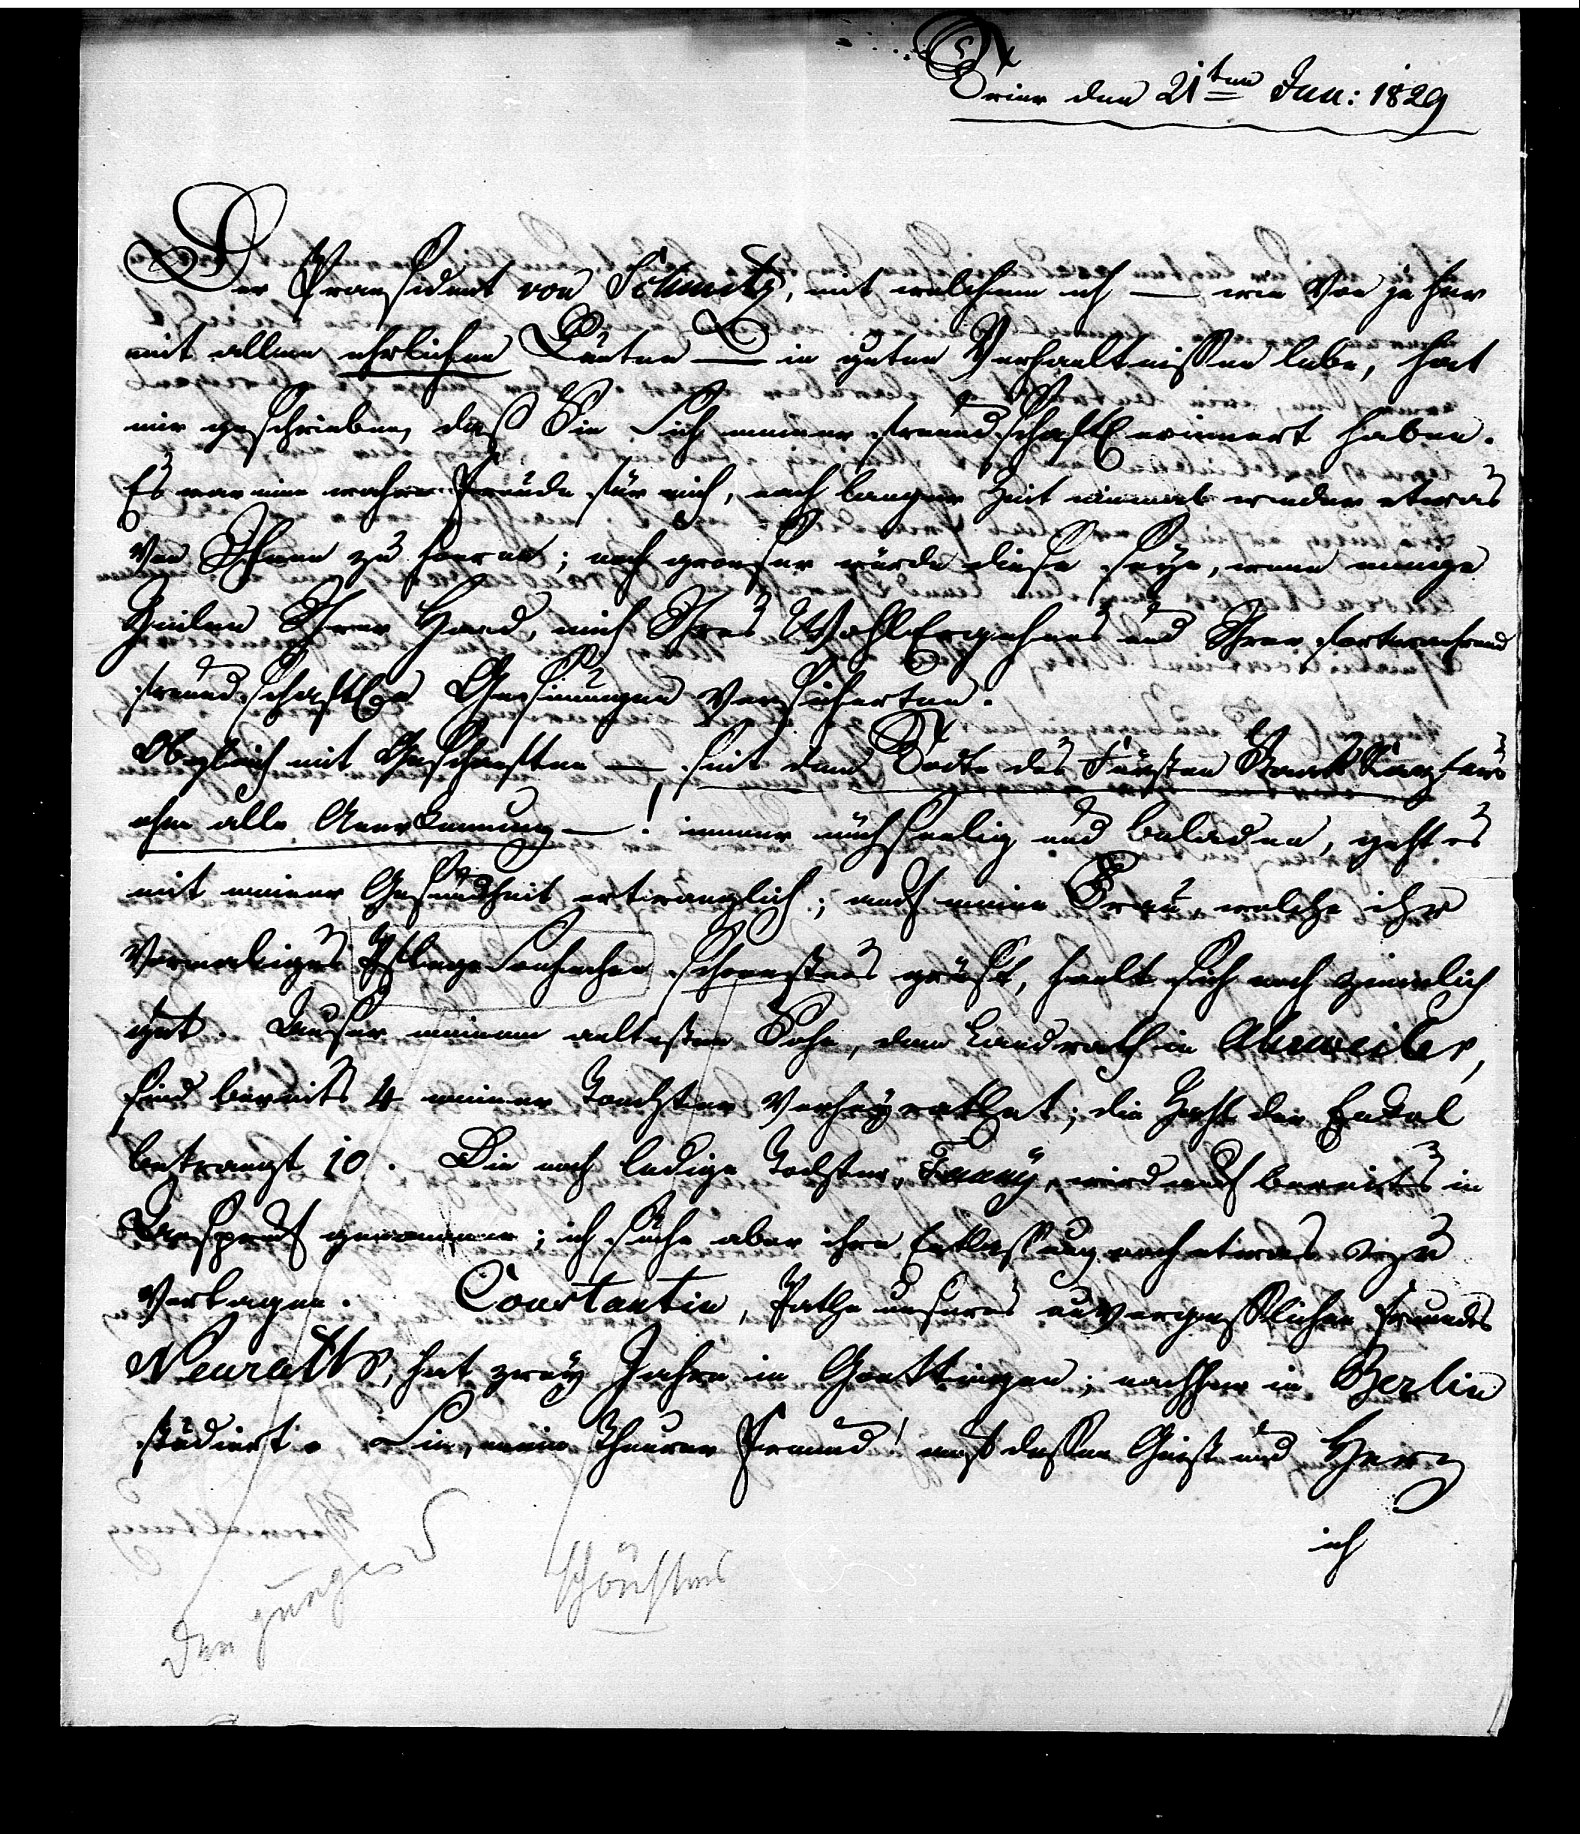 Trier den 21ten Jun: 1829
Der Praesident von Schmitz, mit welchem ich — wie von je her
mit allen ehrlichen Leuten — in guten Verhaeltnissen lebe, hat
mir geschrieben, daß Sie sich meiner freundschaftl. erinnert haben.
Es war eine wahre Freude für mich, nach langer Zeit einmal wieder etwas
von Ihnen zu hoeren; noch groeser würde diese seyn, wenn einige
Zeilen Ihrer Hand, mich Ihres WohlErgehens und Ihrer fortwaehrend
freundschaftl. Gesinnungen versicherten.
Obgleich mit Geschaeften — seit dem Todte des Fürsten StaatsKanzlers
ohne alle Anerkennung —! immer mühseelig und beladen, geht es
mit meiner Gesundheit ertraeglich; auch meine Frau, welche ihr
vormaliges Pflege schoenstens grüßt, haelt sich noch ziemlich
gut. Auser meinem aeltesten Sohn, dem Landrath in Ahrweiler,
sind bereits 4 meiner Toechter verheyrathet; die Zahl der Enkel
betraegt 10. Die noch ledige Tochter, Fanny, wird auch bereits in
Anspruch genommen; ich suche aber ihre Entlassung noch etwas zu
vertagen. Constantin, Pathe unseres unvergesslichen Freundes
Neuraths, hat zwey Jahre in Goettingen; nachher in Berlin
studiert. Sie, mein theurer Freund! auf dessen Geist und Herz
ich
den
schönstens